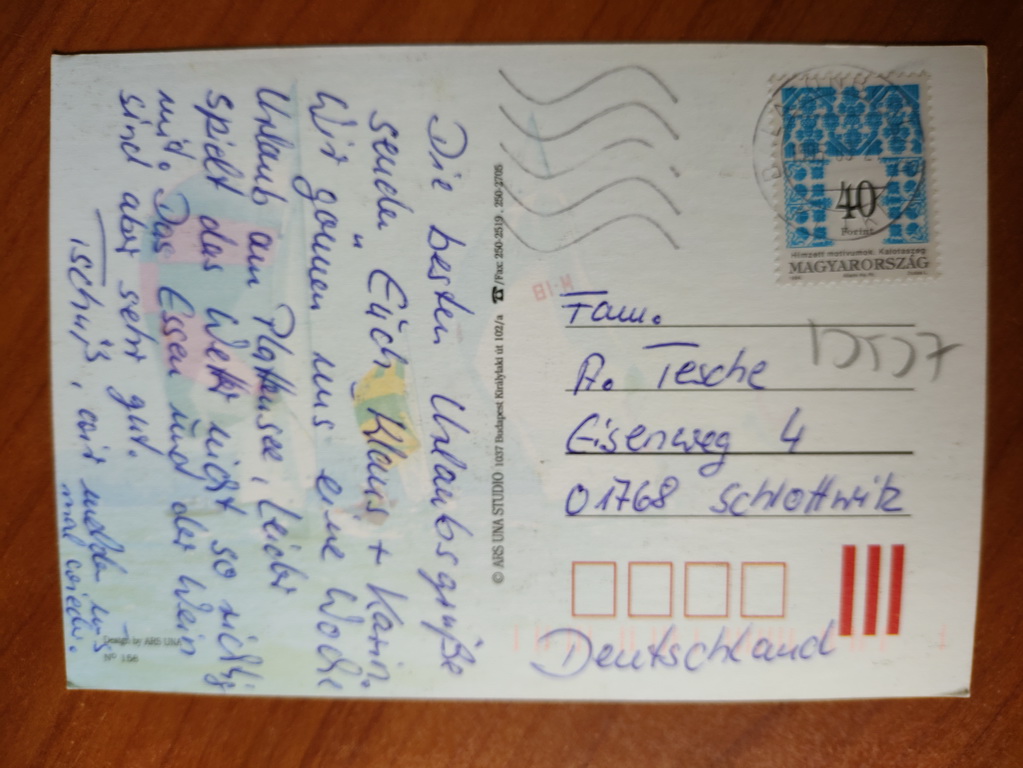 Die besten Urlaubsgrüße
senden Euch Klaus + Karin.
Wir gönnen uns eine Woche
Urlaub am Plattensee, leider
spielt das Wetter nicht so richtig
mit. Das Essen und der Wein
sind aber sehr gut.
Tschüß, wir melden uns
mal wieder.
Design by ARS UNA
Nº 156
© ARS UNA STUDIO 1037 Budapest Királylaki út 102/a ☎/Fax: 250-2519, 250-2705
40
Forint
Hímzett motívumok. Kalotaszeg
MAGYARORSZÁG
Fam.
A. Tesche
Eisenweg 4
01768 Schlottwitz
Deutschland